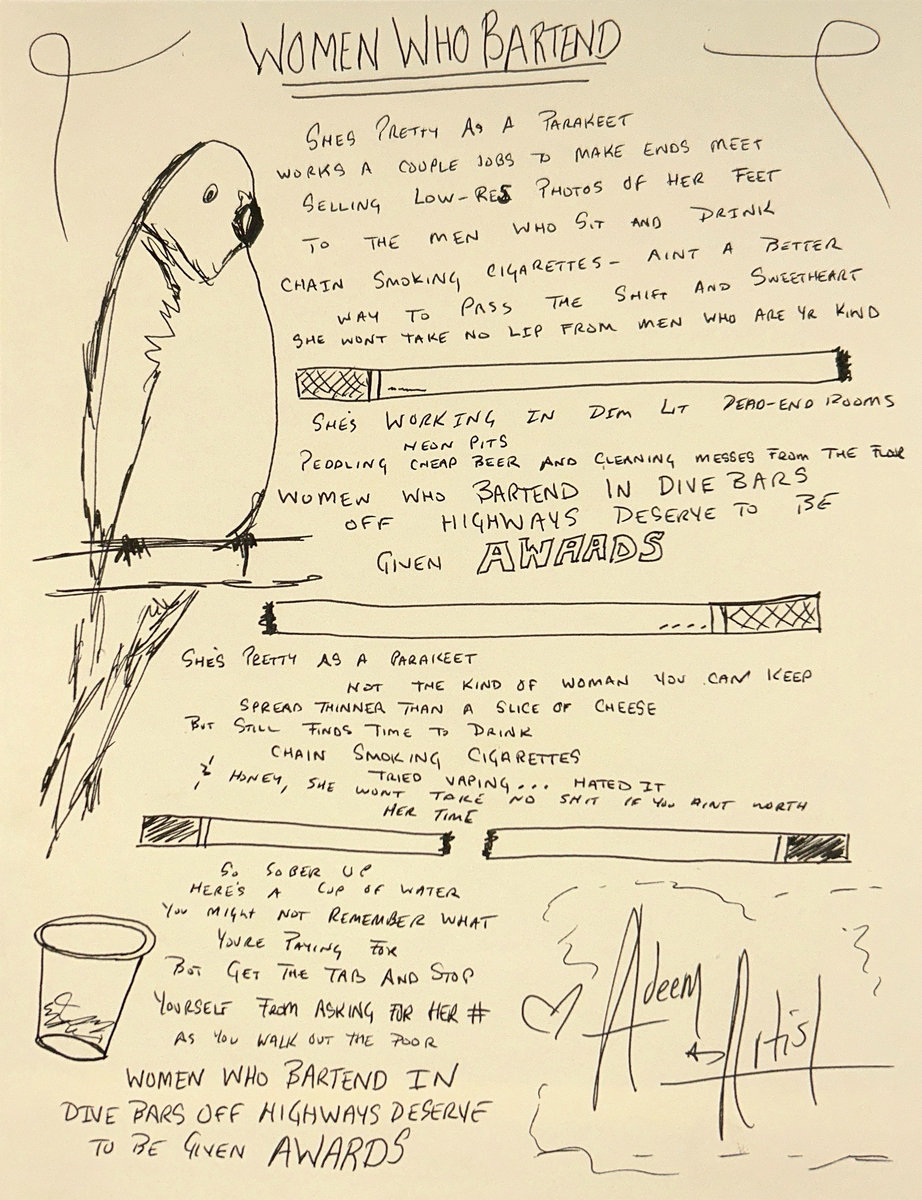 WOMEN WHO BARTEND
SHES PRETTY AS A PARAKEET
WORKS A COUPLE JOBS TO MAKE ENDS MEET
SELLING LOW-RES PHOTOS OF HER FEET
TO THE MEN WHO SIT AND DRINK
CHAIN SMOKING CIGARETTES - AINT A BETTER
WAY TO PASS THE SHIFT AND SWEETHEART
SHE WONT TAKE NO LIP FROM MEN WHO ARE YR KIND
SHE'S WORKING IN DIM LIT DEAD-END ROOMS
NEON PITS
PEDDLING CHEAP BEER AND CLEANING MESSES FROM THE FLOOR
WOMEN WHO BARTEND IN DIVE BARS
OFF HIGHWAYS DESERVE TO BE
GIVEN AWARDS
SHE'S PRETTY AS A PARAKEET
NOT THE KIND OF WOMAN YOU CAN KEEP
SPREAD THINNER THAN A SLICE OF CHEESE
BUT STILL FINDS TIME TO DRINK
CHAIN SMOKING CIGARETTES
TRIED VAPING... HATED IT
& HONEY, SHE WONT TAKE NO SHIT IF YOU AINT WORTH
HER TIME
SO SOBER UP
HERE'S A CUP OF WATER
YOU MIGHT NOT REMEMBER WHAT
YOURE PAYING FOR
BUT GET THE TAB AND STOP
YOURSELF FROM ASKING FOR HER #
AS YOU WALK OUT THE DOOR
WOMEN WHO BARTEND IN
DIVE BARS OFF HIGHWAYS DESERVE
TO BE GIVEN AWARDS
Adeem
as Artist